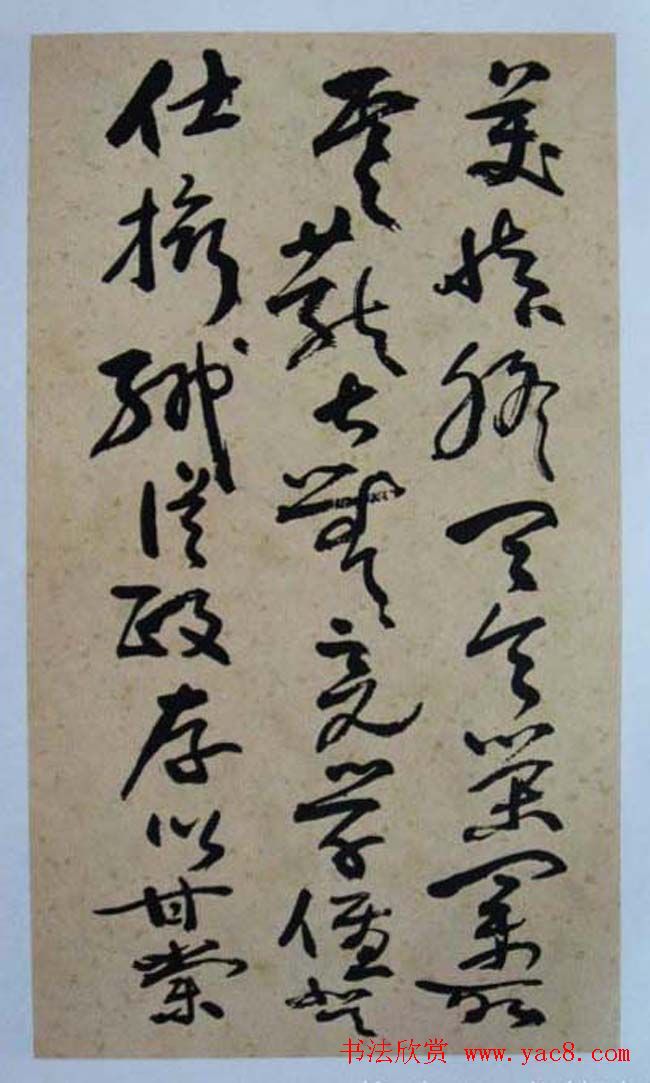 美慎終宜令榮業所
基藉甚無竟學優登
仕攝職從政存以甘棠
书法欣赏 www.yac8.com